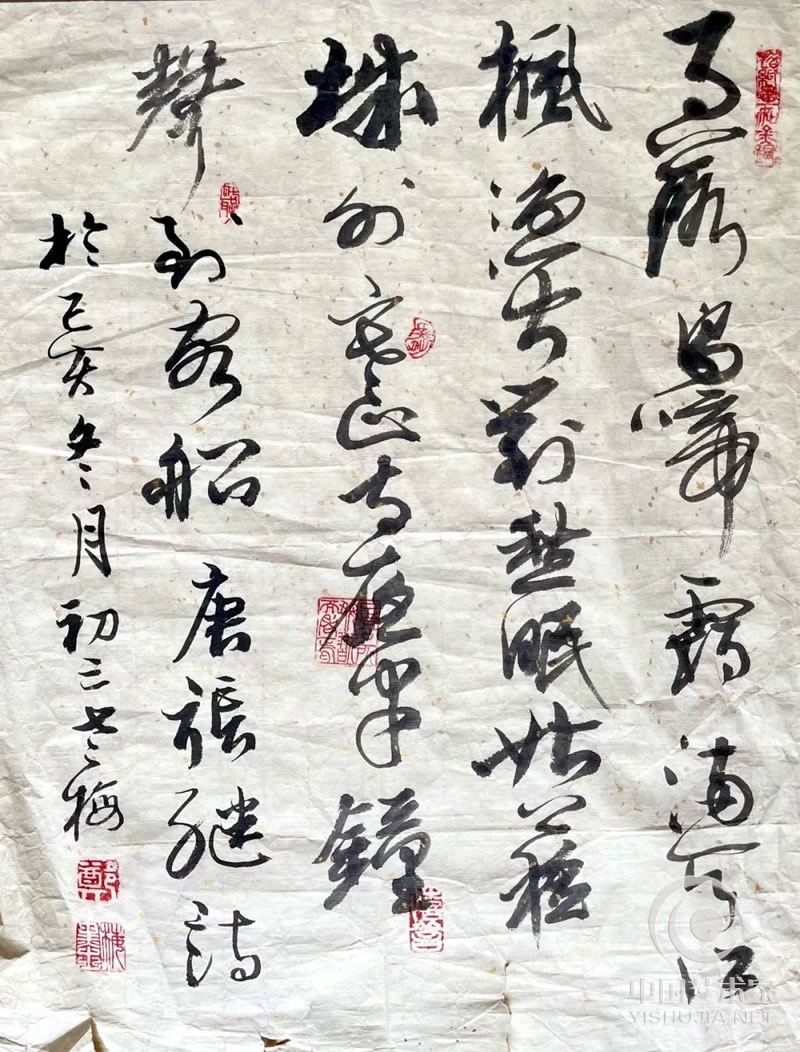 月落烏啼霜滿天江
楓漁火對愁眠姑蘇
城外寒山寺夜半鐘
聲到客船 唐張繼詩
於己亥冬月初三梅
中国艺术家
YISHUJIA.NET